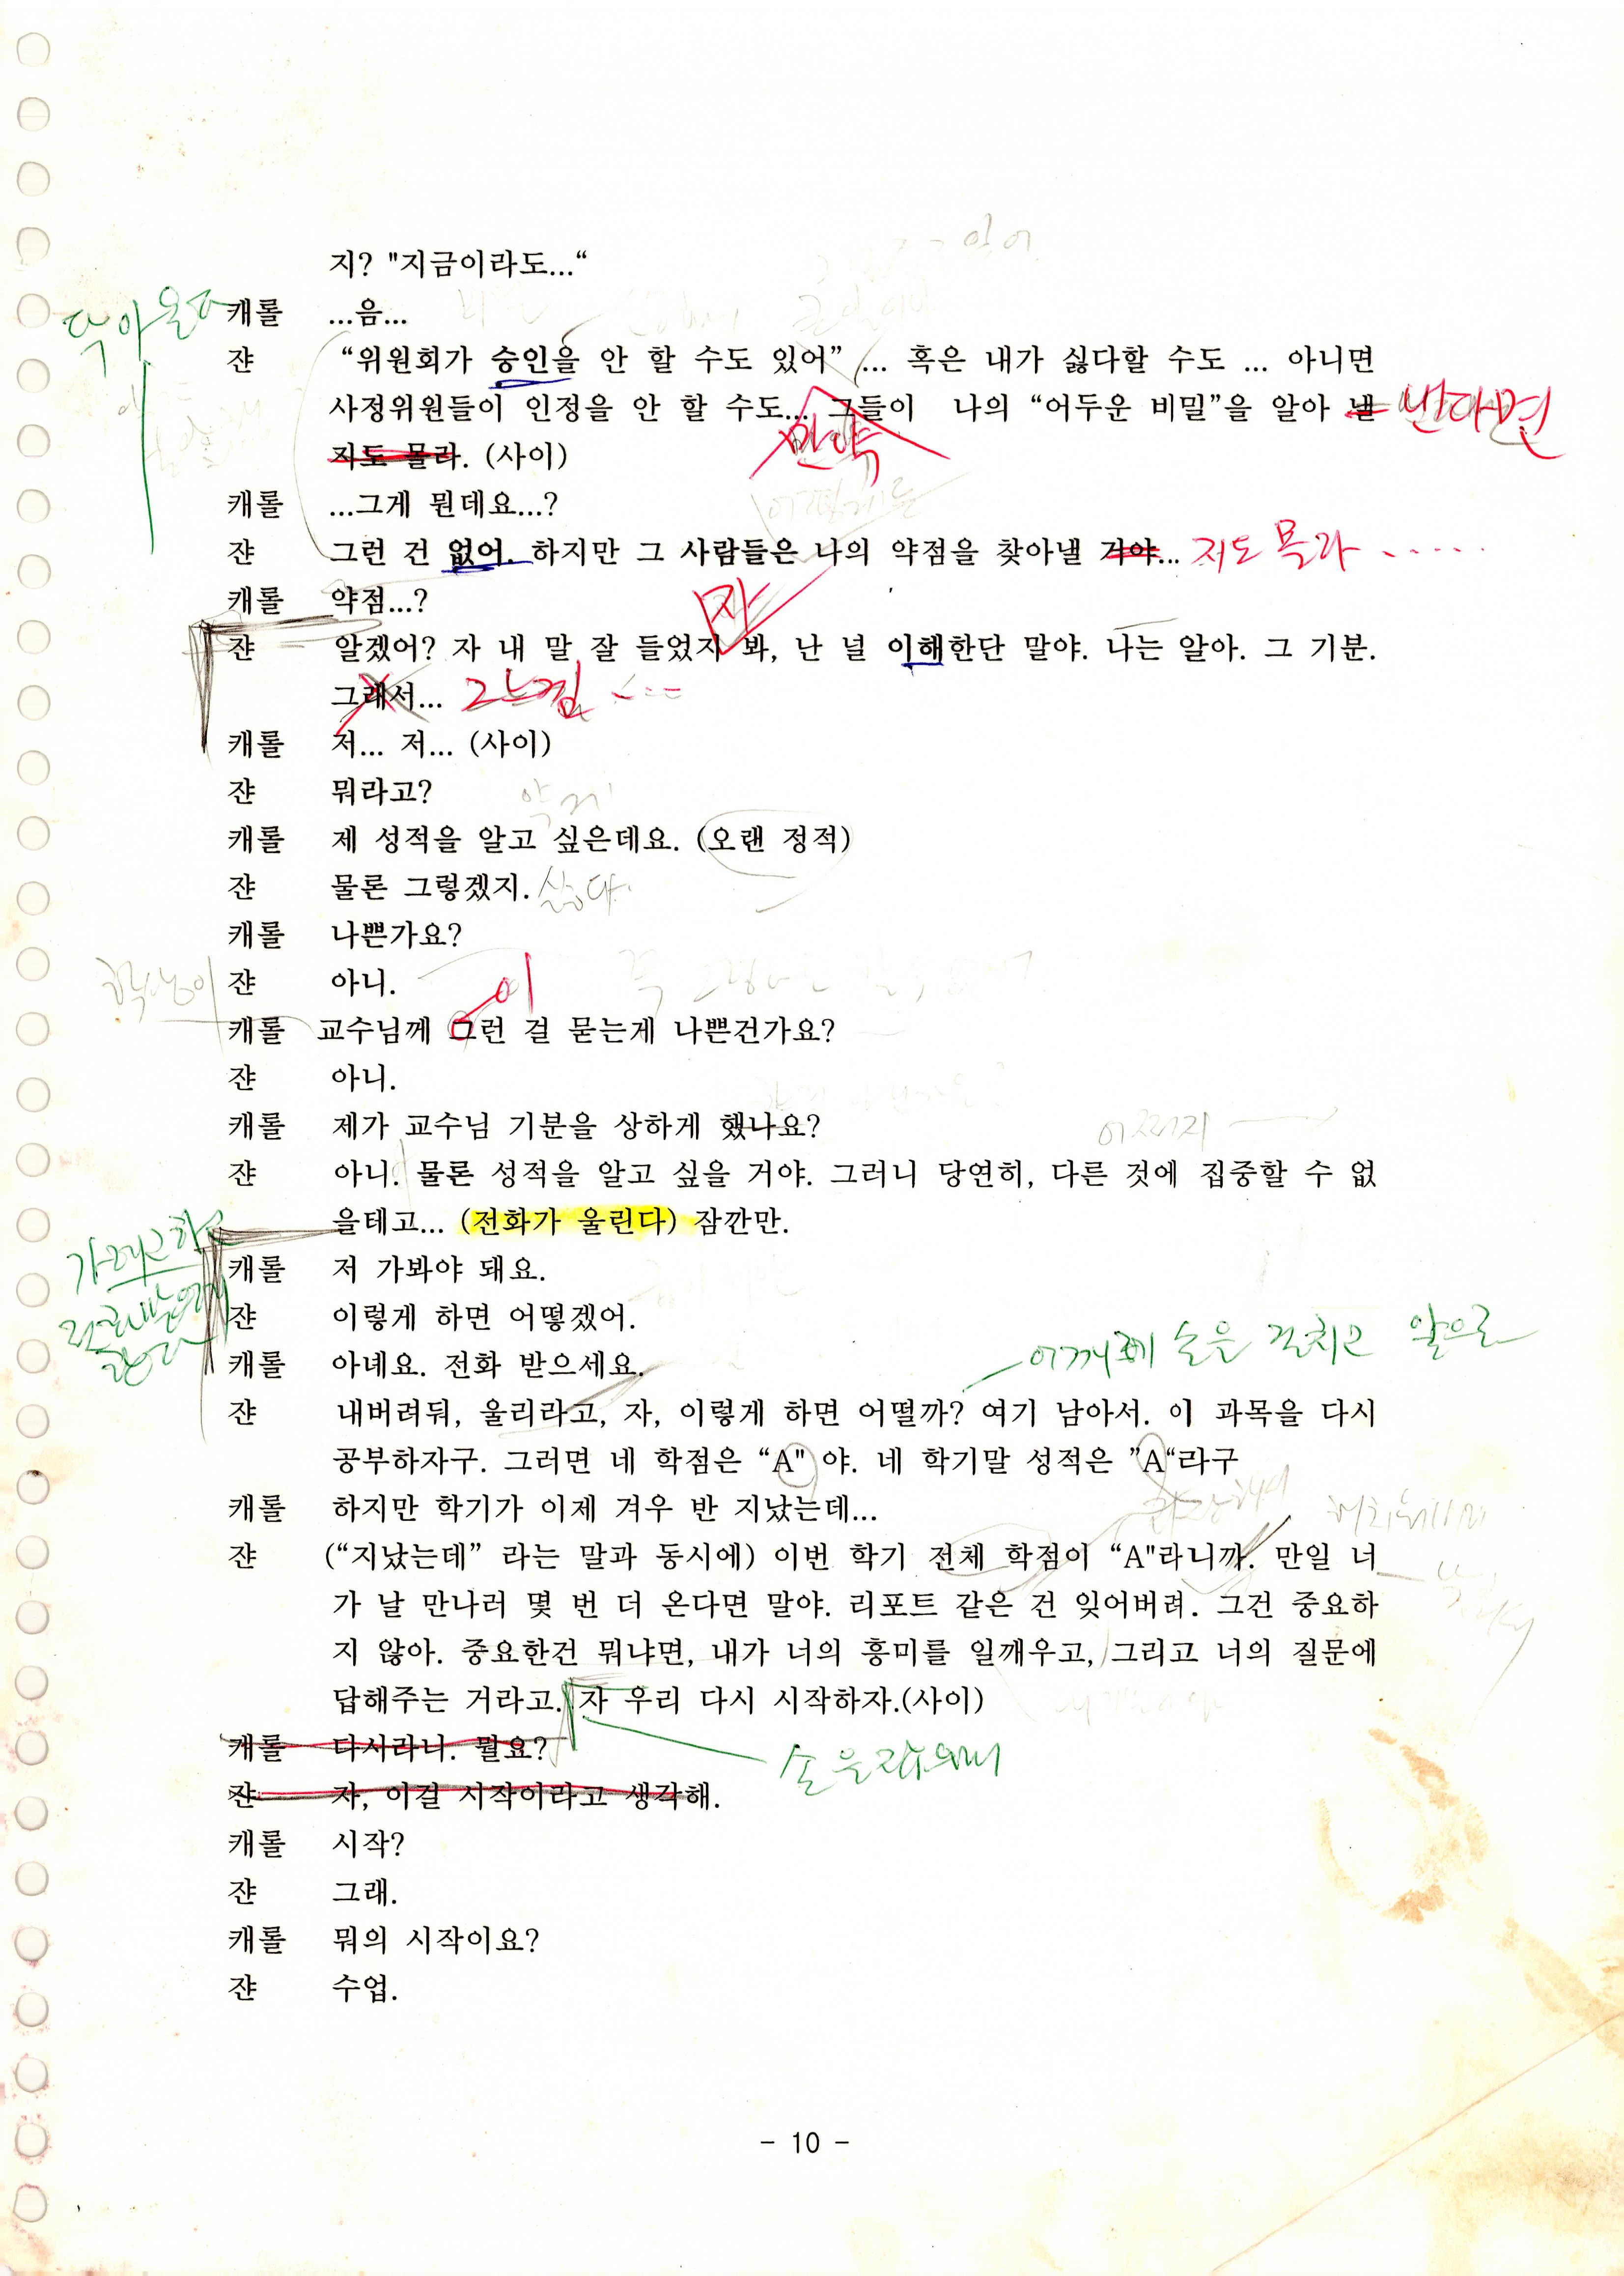 지? "지금이라도...“
닥아 온다
캐롤 ...음...
쟌 “위원회가 승인을 안 할 수도 있어” ... 혹은 내가 싫다할 수도 ... 아니면
사정위원들이 인정을 안 할 수도... 그들이 나의 “어두운 비밀”을 알아 낼 낸다면
만약
지도 몰라. (사이)
캐롤 ...그게 뭔데요...?
어떻게든
쟌 그런 건 없어. 하지만 그 사람들은 나의 약점을 찾아낼 거야... 지도 몰라 ......
캐롤 약점...?
자
쟌 알겠어? 자 내 말 잘 들었지 봐, 난 널 이해한단 말야. 나는 알아. 그 기분.
그래서... 그 느낌 ....
캐롤 저... 저... (사이)
쟌 뭐라고?
캐롤 제 성적을 알고 싶은데요. (오랜 정적)
쟌 물론 그렇겠지.
캐롤 나쁜가요?
쟌 아니.
이
캐롤 교수님께 그런 걸 묻는게 나쁜건가요?
쟌 아니.
캐롤 제가 교수님 기분을 상하게 했나요?
어쩐지
쟌 아니. 물론 성적을 알고 싶을 거야. 그러니 당연히, 다른 것에 집중할 수 없
을테고... (전화가 울린다) 잠깐만.
캐롤 저 가봐야 돼요.
쟌 이렇게 하면 어떻겠어.
어깨에 손을 걸치고 앞으로
캐롤 아녜요. 전화 받으세요.
쟌 내버려둬, 울리라고, 자, 이렇게 하면 어떨까? 여기 남아서. 이 과목을 다시
공부하자구. 그러면 네 학점은 “A" 야. 네 학기말 성적은 ”A“라구
캐롤 하지만 학기가 이제 겨우 반 지났는데...
쟌 (“지났는데” 라는 말과 동시에) 이번 학기 전체 학점이 “A"라니까. 만일 너
가 날 만나러 몇 번 더 온다면 말야. 리포트 같은 건 잊어버려. 그건 중요하
지 않아. 중요한건 뭐냐면, 내가 너의 흥미를 일깨우고, 그리고 너의 질문에
답해주는 거라고. 자 우리 다시 시작하자.(사이)
캐롤 다시라니. 뭘요?
손을
쟌 자, 이걸 시작이라고 생각해.
캐롤 시작?
쟌 그래.
캐롤 뭐의 시작이요?
쟌 수업.
- 10 -